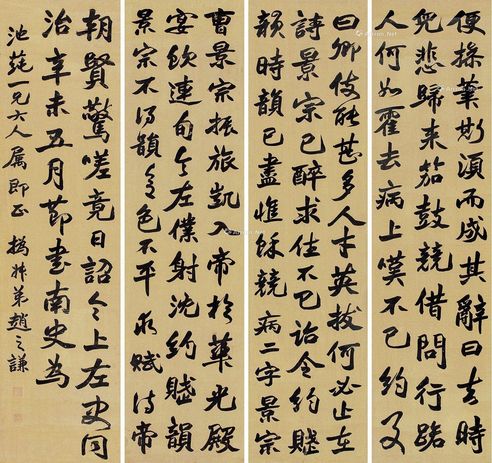 曹景宗振旅凱入帝於華光殿
宴飲連句令左僕射沈約賦韻
景宗不得韻意色不平求賦詩帝
曰卿伎能甚多人才英拔何必止在
詩景宗已醉求作不已詔令約賦
韻時韻已盡惟餘競病二字景宗
便操筆斯須而成其辭曰去時
兒悲歸來笳鼓競借問行路
人何如霍去病上嘆不已約及
朝賢驚嗟竟日詔令上左史同
治辛未五月節書南史為
池一兄大人屬即正 撝叔弟趙之謙